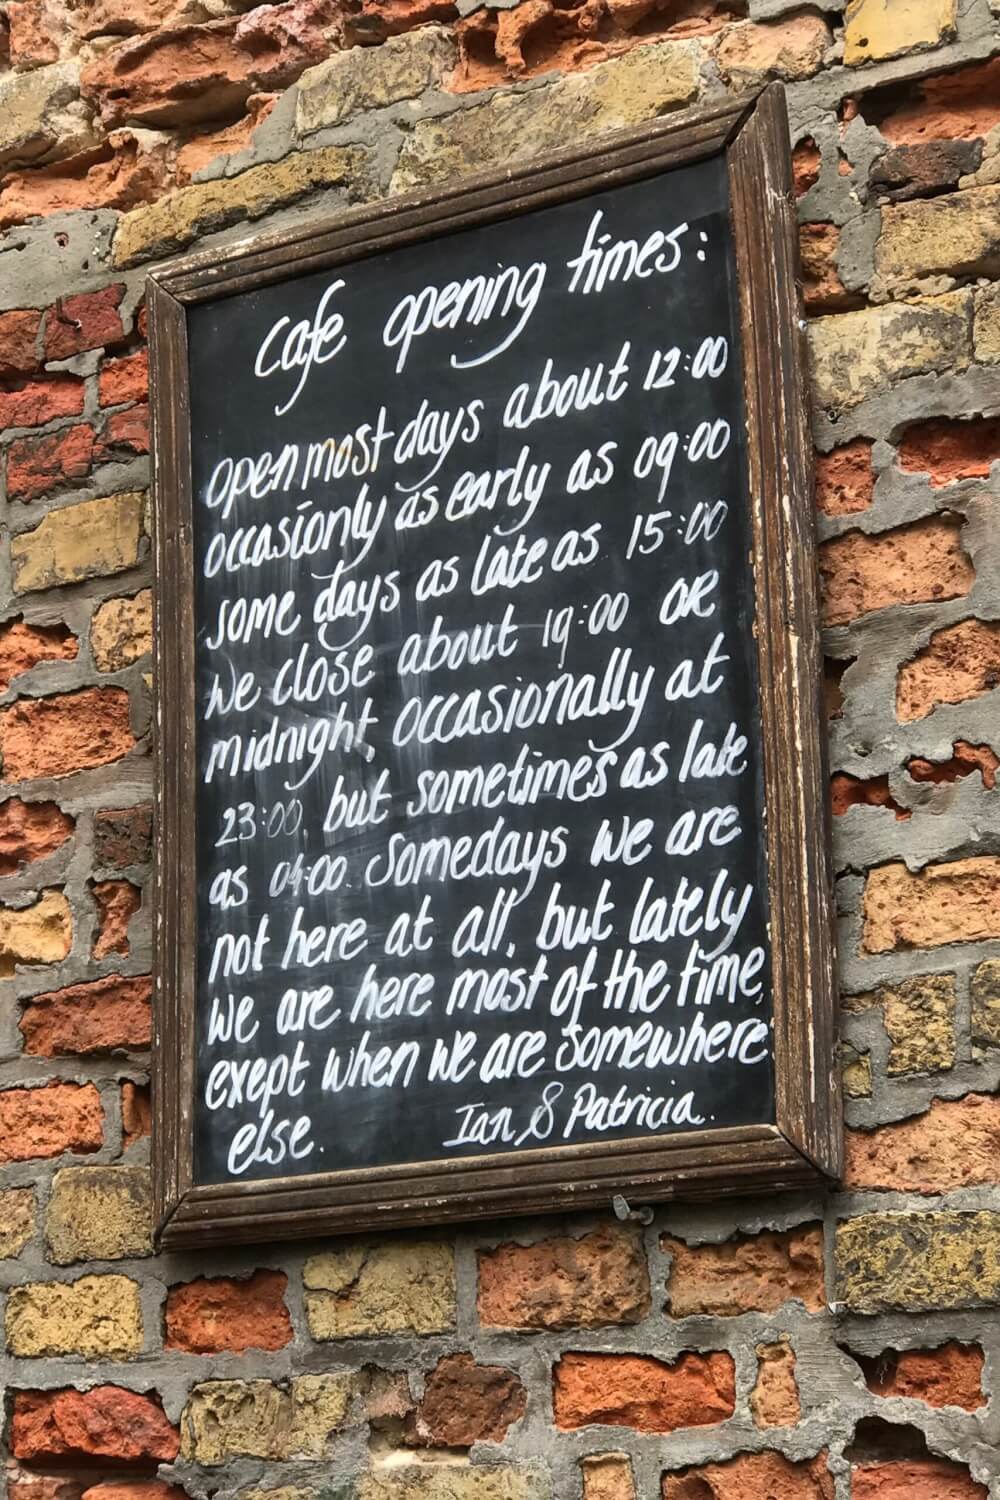 Cafe opening times:
open most days about 12:00
occasionly as early as 09:00
some days as late as 15:00
We close about 19:00 OR
midnight, occasionally at
23:00, but sometimes as late
as 04:00. Somedays we are
not here at all, but lately
we are here most of the time,
exept when we are somewhere
else. Ian & Patricia.